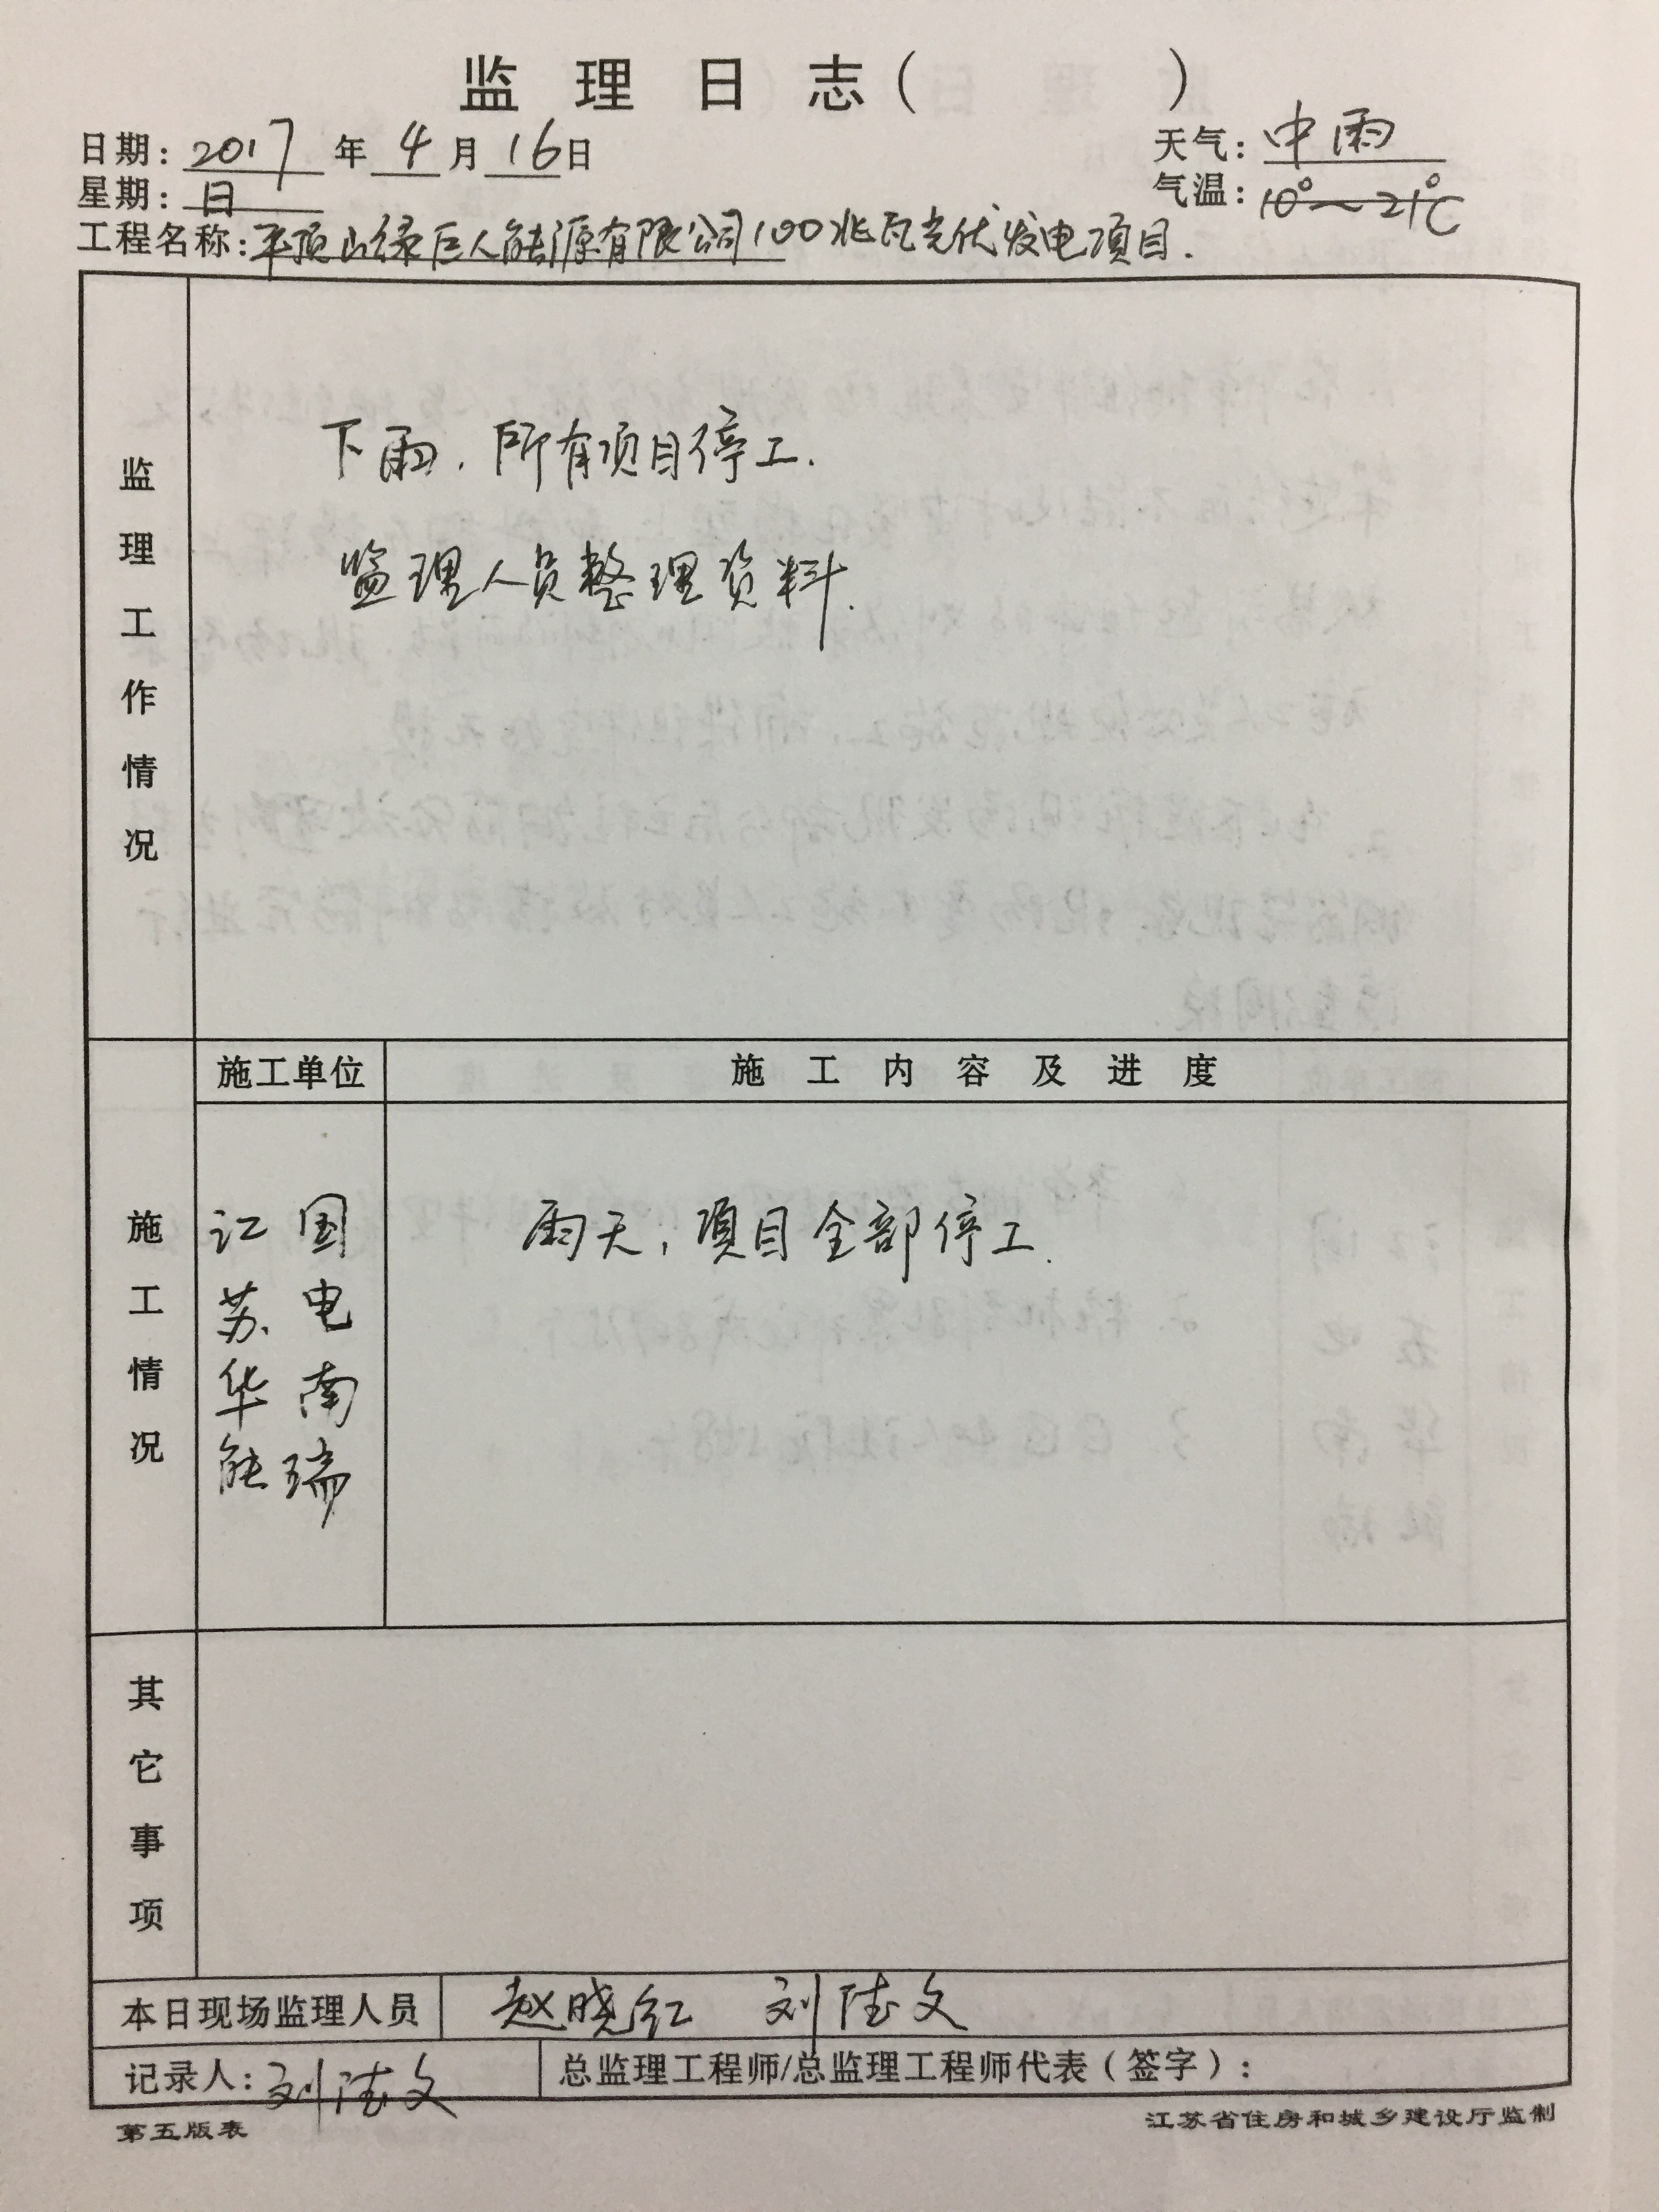 监理日志（ ）
日期：2017年4月16日 天气：中雨
星期：日 气温：10°～21℃
工程名称：平顶山绿巨人能源有限公司100兆瓦光伏发电项目.
监理工作情况
下雨，所有项目停工.
监理人员整理资料.
施工单位 施工内容及进度
施工情况
江苏华能
国电南瑞
雨天，项目全部停工.
其它事项
本日现场监理人员 赵晓红 刘陆文
记录人：刘陆文 总监理工程师/总监理工程师代表（签字）：
第五版表 江苏省住房和城乡建设厅监制